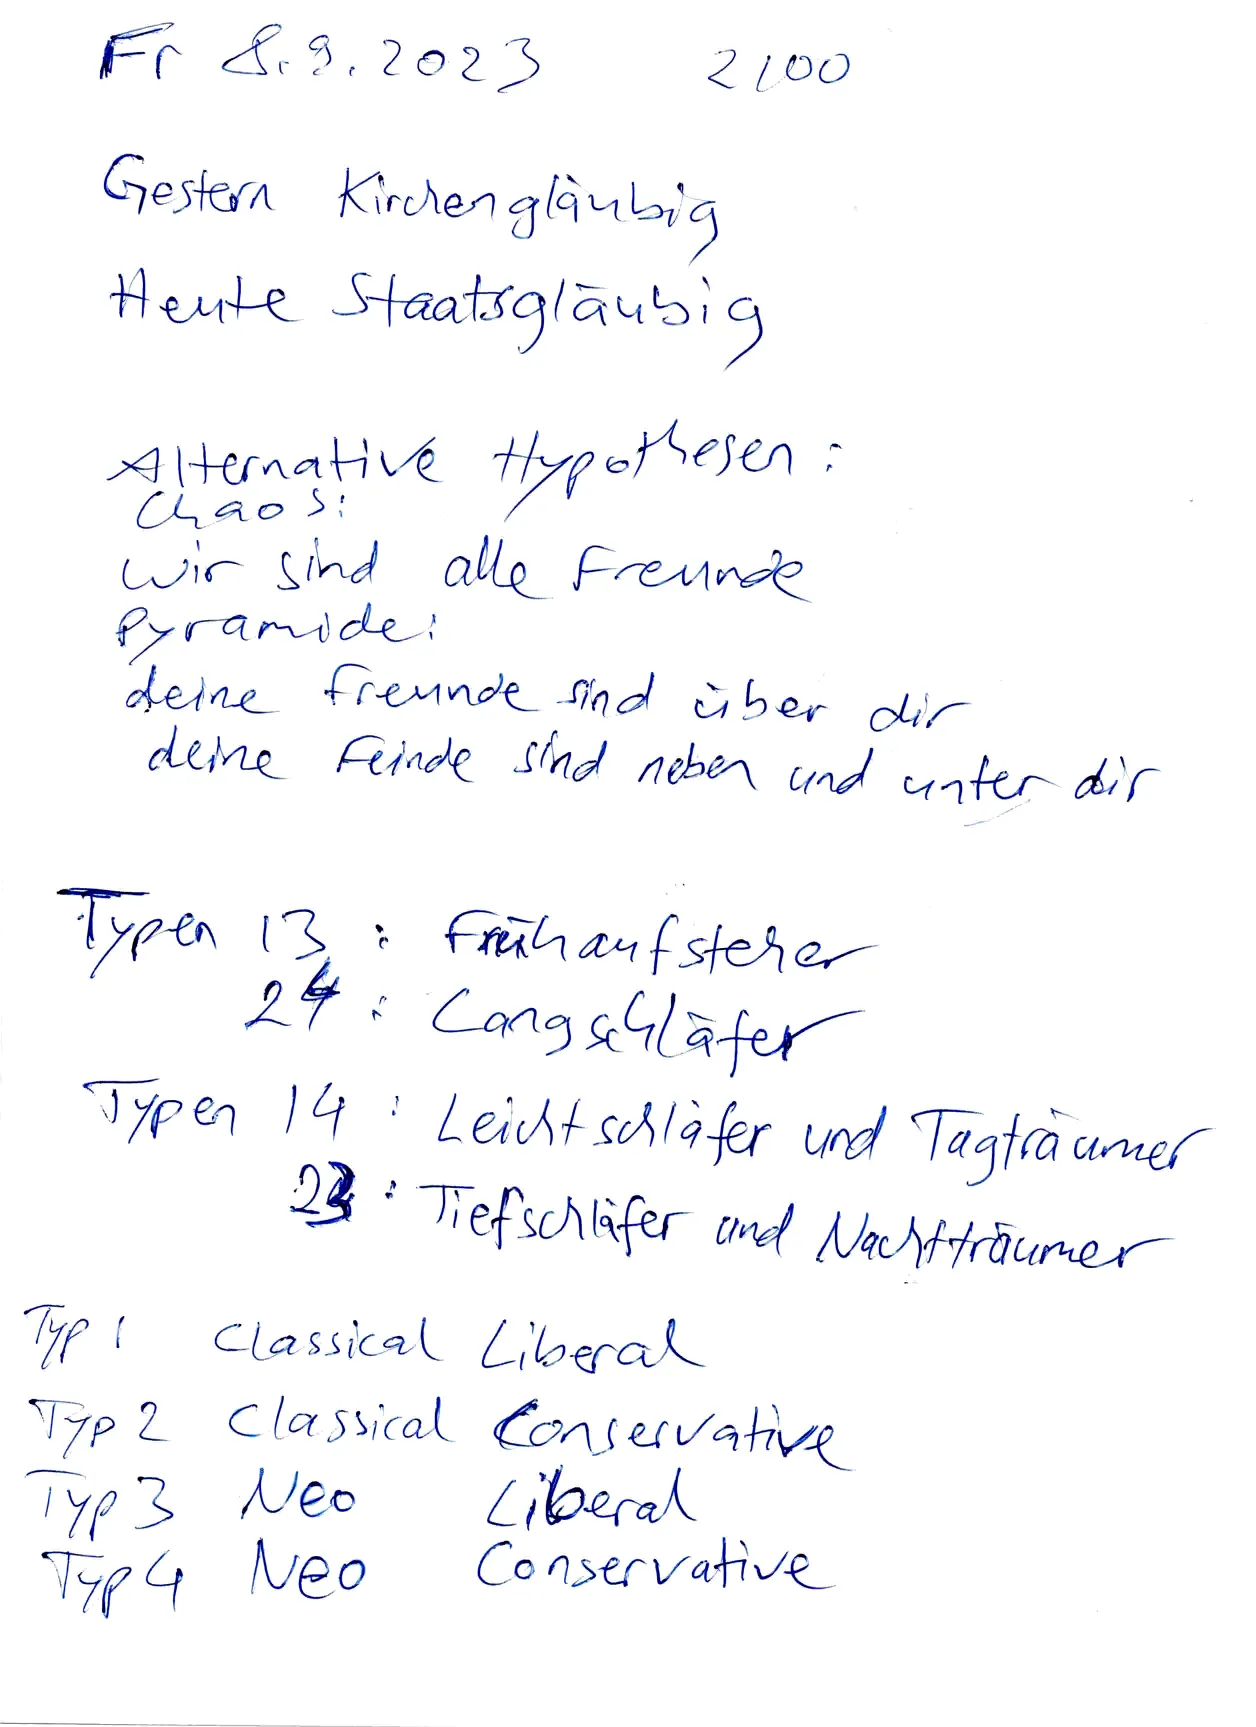 Fr 8.9.2023 2100
Gestern Kirchengläubig
Heute Staatsgläubig
Alternative Hypothesen:
Chaos:
wir sind alle Freunde
Pyramide:
deine Freunde sind über dir
deine Feinde sind neben und unter dir
Typen 13: Frühaufsteher
24: Langschläfer
Typen 14: Leichtschläfer und Tagträumer
23: Tiefschläfer und Nachtträumer
Typ 1 Classical Liberal
Typ 2 Classical Conservative
Typ 3 Neo Liberal
Typ 4 Neo Conservative